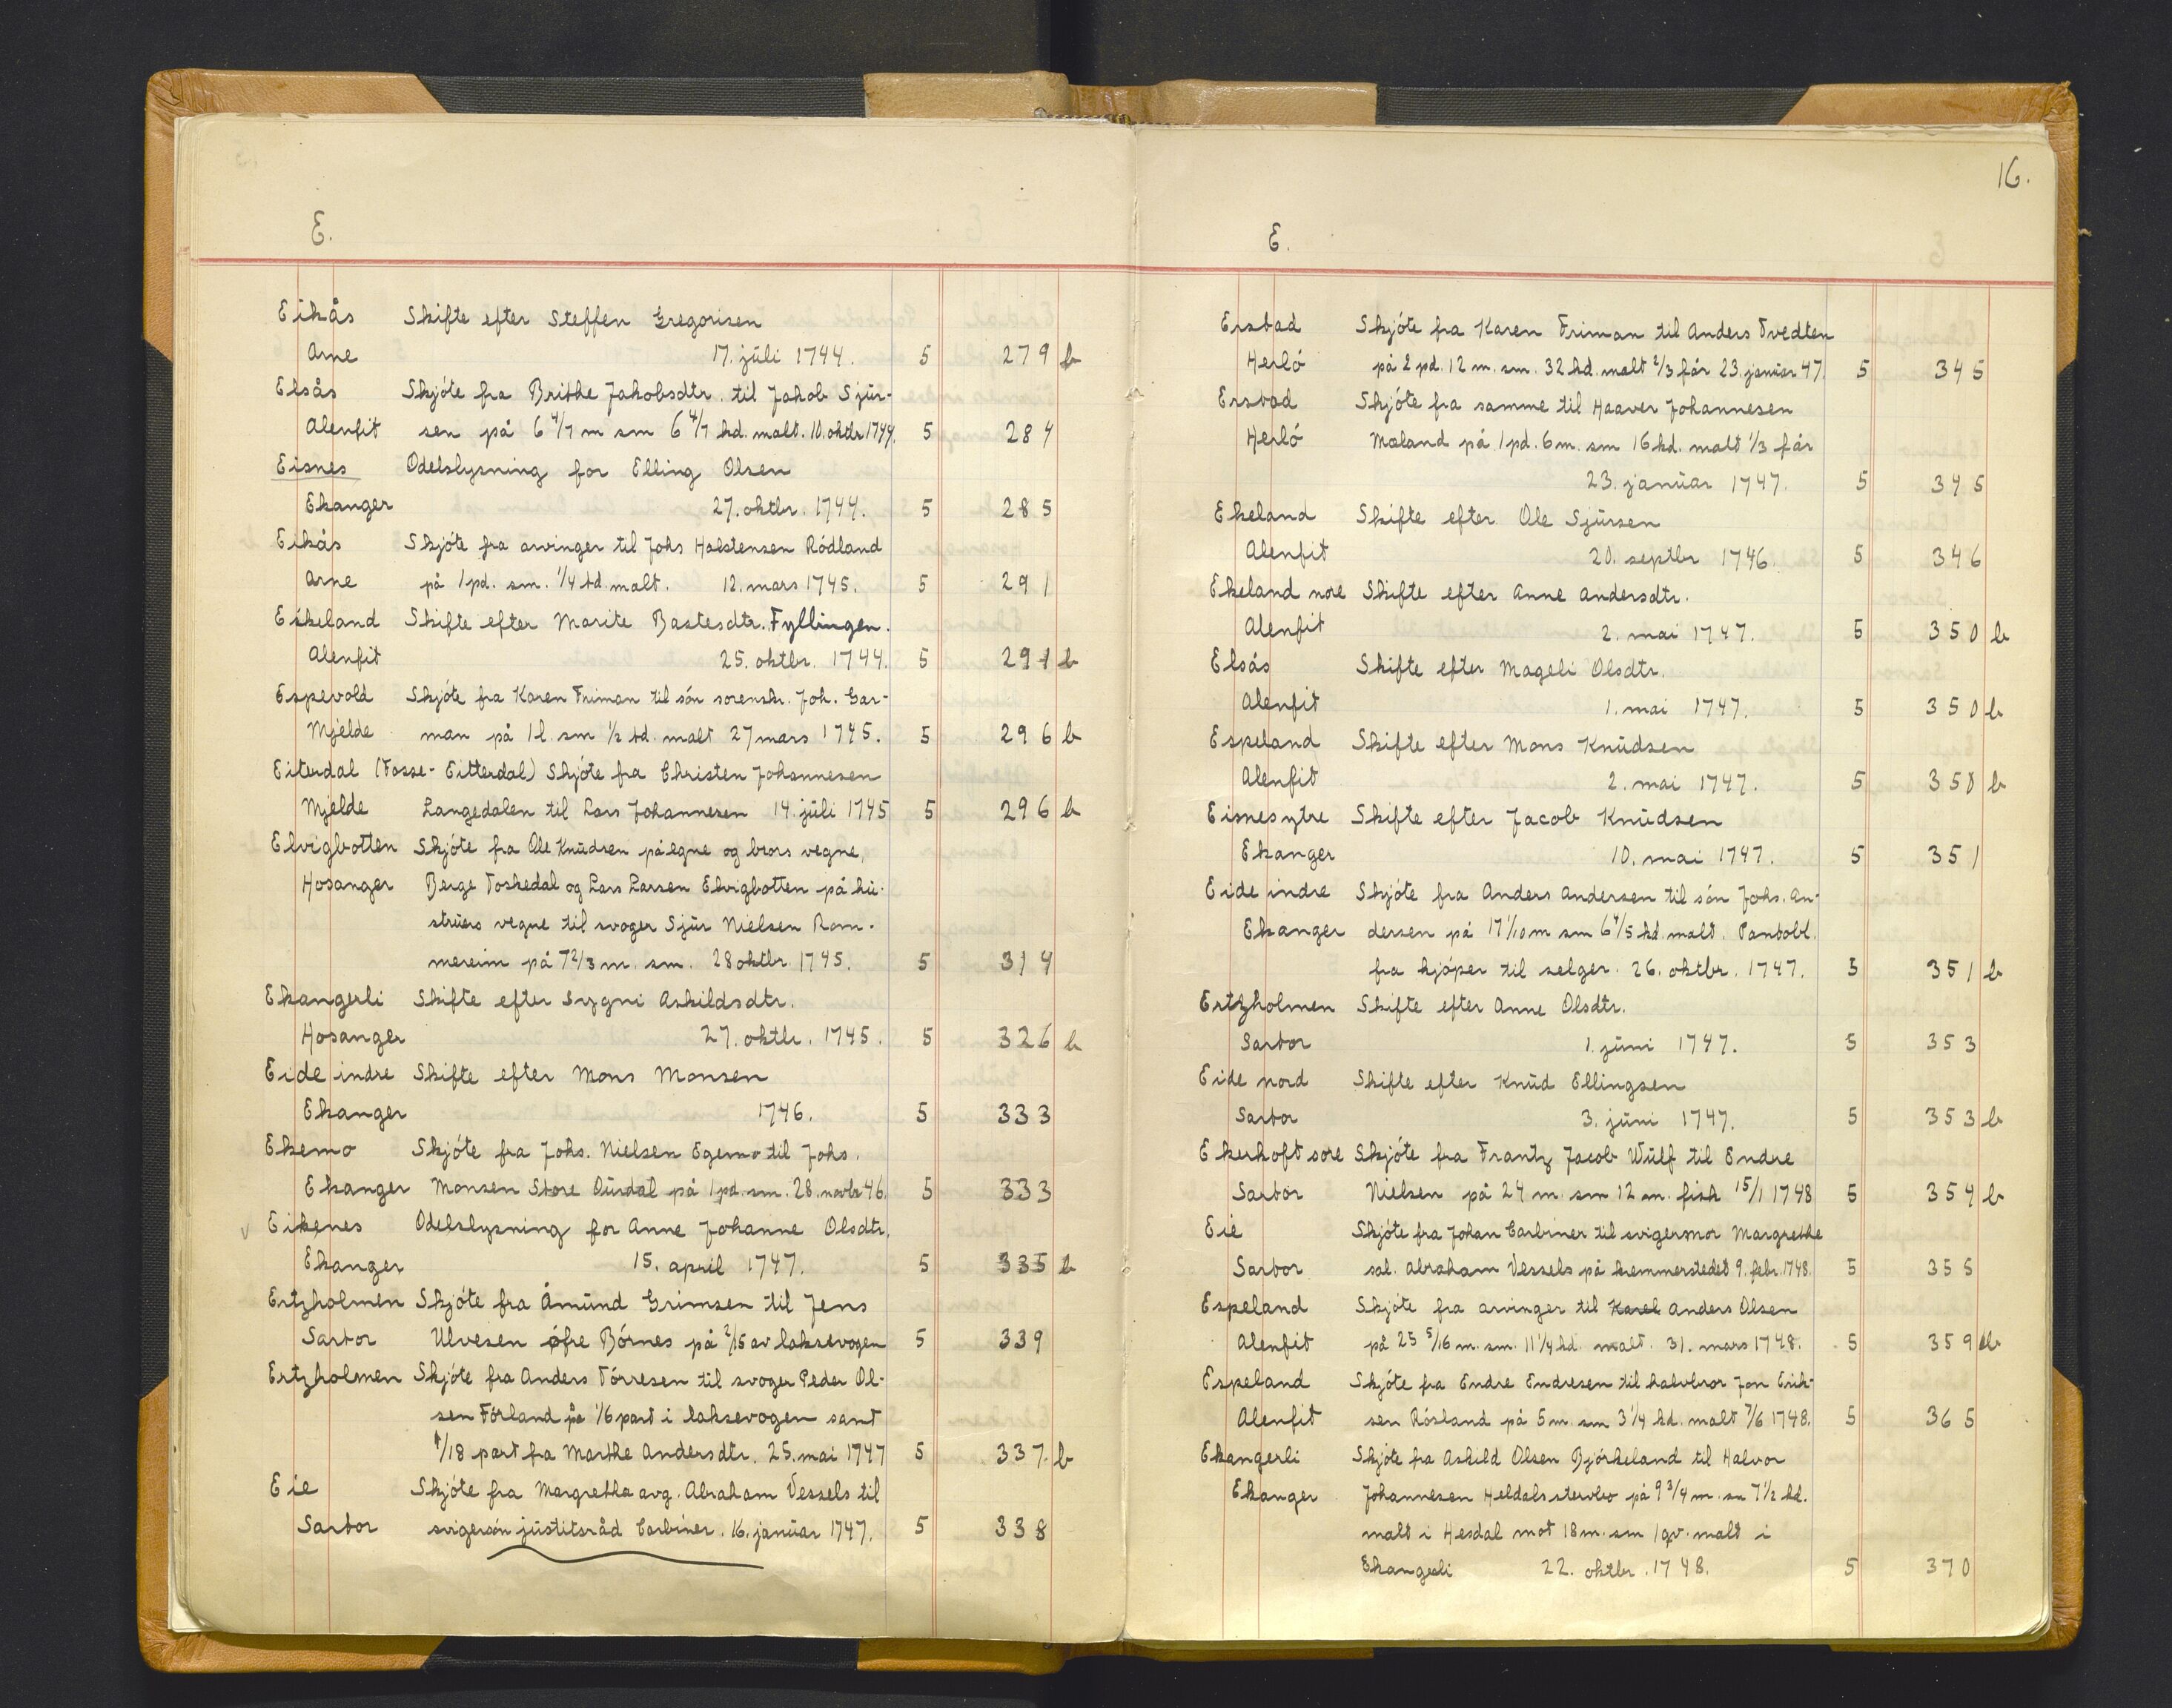 E.
Eikås Skifte efter Steffen Gregorisen
Arne 17. jŭli 1744. 5 279 b
Elsås Skjóte fra Brithe Jakobsdtr. til Jakob Sjŭr-
Alenfit sen på 6 4/7 m sm 6 4/7 kd. malt. 10. oktbr 1744. 5 284
Eisnes Odelslysning for Elling Olsen
Ekanger 27. oktbr. 1744. 5 285
Eikås Skjóte fra arvinger til Johs Halstensen Ródland
Arne på 1 pd. sm. 1/4 td. malt. 12. mars 1745. 5 291
Eikeland Skifte efter Marite Bastesdtr. Fyllingen.
Alenfit 25. oktbr. 1744. 5 291 b
Espevold Skjóte fra Karen Friman til són sorenskr. Joh. Gar-
Mjelde man på 1 l. sm 1/2 td. malt 27 mars 1745. 5 296 b
Eiterdal (Fosse-Eitterdal) Skjóte fra Christen Johannesen
Mjelde Langedalen til Lars Johannesen 14. jŭli 1745 5 296 b
Elvigbotten Skjóte fra Ole Knŭdsen på egne og brors vegne,
Hosanger Berge Toskedal og Lars Larsen Elvigbotten på hŭ-
strŭers vegne til svoger Sjŭr Nielsen Rom-
mereim på 7 2/3 m. sm. 28 oktbr. 1745. 5 314
Ekangerli Skifte efter Sygni Askildsdtr.
Hosanger 27. oktbr. 1745. 5 326 b
Eide indre Skifte efter Mons Monsen
Ekanger 1746. 5 333
Ekemo Skjóte fra Johs. Nielsen Egemo til Johs.
Ekanger Monsen Store Oŭrdal på 1 pd. sm. 28. novbr 46. 5 333
v Eikenes Odelslysning for Anne Johanne Olsdtr.
Ekanger 15. april 1747. 5 335 b
Ertzholmen Skjóte fra Åmŭnd Grimsen til Jens
Sartor Ulvesen øfre Bórnes på 2/15 av laksevogen 5 339
Ertzholmen Skjóte fra Anders Tórresen til svoger Peder Ol-
sen Fórland på 1/6 part i laksevogen samt
1/18 part fra Marthe Andersdtr. 25. mai 1747 5 337. b
Eie Skjóte fra Margretha avg. Abraham Vessels til
Sartor svigersón jŭstitsråd Carbiner. 16. janŭar 1747. 5 338
16.
E.
Erstad Skjóte fra Karen Friman til Anders Tvedten
Herló på 2 pd. 12 m. sm. 32 kd. malt 2/3 får 23. janŭar 47. 5 345
Erstad Skjóte fra samme til Haaver Johannesen
Herló Mæland på 1 pd. 6 m. sm 16 kd. malt 1/3 får
23. janŭar 1747. 5 345
Ekeland Skifte efter Ole Sjŭrsen
Alenfit 20. septbr 1746. 5 346
Ekeland nore Skifte efter Anne Andersdtr.
Alenfit 2. mai 1747. 5 350 b
Elsås Skifte efter Mageli Olsdtr.
Alenfit 1. mai 1747. 5 350 b
Espeland Skifte efter Mons Knŭdsen
Alenfit 2. mai 1747. 5 350 b
Eisnes ytre Skifte efter Jacob Knŭdsen
Ekanger 10. mai 1747. 5 351
Eide indre Skjóte fra Anders Andersen til són Johs. An-
Ekanger dersen på 17 1/10 m sm 6 4/5 kd. malt. Pantobl.
fra kjóper til selger. 26. oktbr. 1747. 5 351 b
Ertzholmen Skifte efter Anne Olsdtr.
Sartor 1. jŭni 1747. 5 353
Eide nord Skifte efter Knŭd Ellingsen
Sartor 3. jŭni 1747. 5 353 b
Ekerhoft sore Skjóte fra Frantz Jacob Wŭlf til Endre
Sartor Nielsen på 24 m. sm 12 m. fisk 15/1 1748 5 354 b
Eie Skjóte fra Johan Carbiner til svigermor Margrethe
Sartor sal. Abraham Vessels på kremmerstedet 9. febr. 1748. 5 355
Espeland Skjóte fra arvinger til Karel Anders Olsen
Alenfit på 25 5/16 m. sm. 11 1/4 kd. malt. 31. mars 1748. 5 359 b
Espeland Skjóte fra Endre Endresen til halvbror Jon Erik-
Alenfit sen Rósland på 5 m. sm 3 1/4 kd. malt 7/6 1748. 5 365
Ekangerli Skjóte fra Askild Olsen Bjórkeland til Halvor
Ekanger Johannesen Heldals stervbo på 9 3/4 m. sm 7 1/2 kd.
malt i Hesdal mot 18 m. sm 1 qv. malt i
Ekangerli 22. oktbr. 1748. 5 370